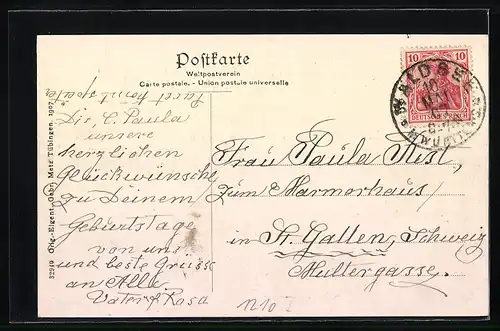 Postkarte
Weltpostverein
Carte postale. - Union postale universelle
10 10
DEUTSCHES REICH
WALDSEE
Dir, l. Paula
unsere
herzlichen
Glückwünsche
zu Deinem
Geburtstage
von uns
und beste Grüsse
an Alle
Vater & Rosa
Frau Paula
zum Marmorhaus
in St. Gallen, Schweiz
Multergasse.
32910 Orig.-Eigent. Gebr. Metz Tübingen. 1907